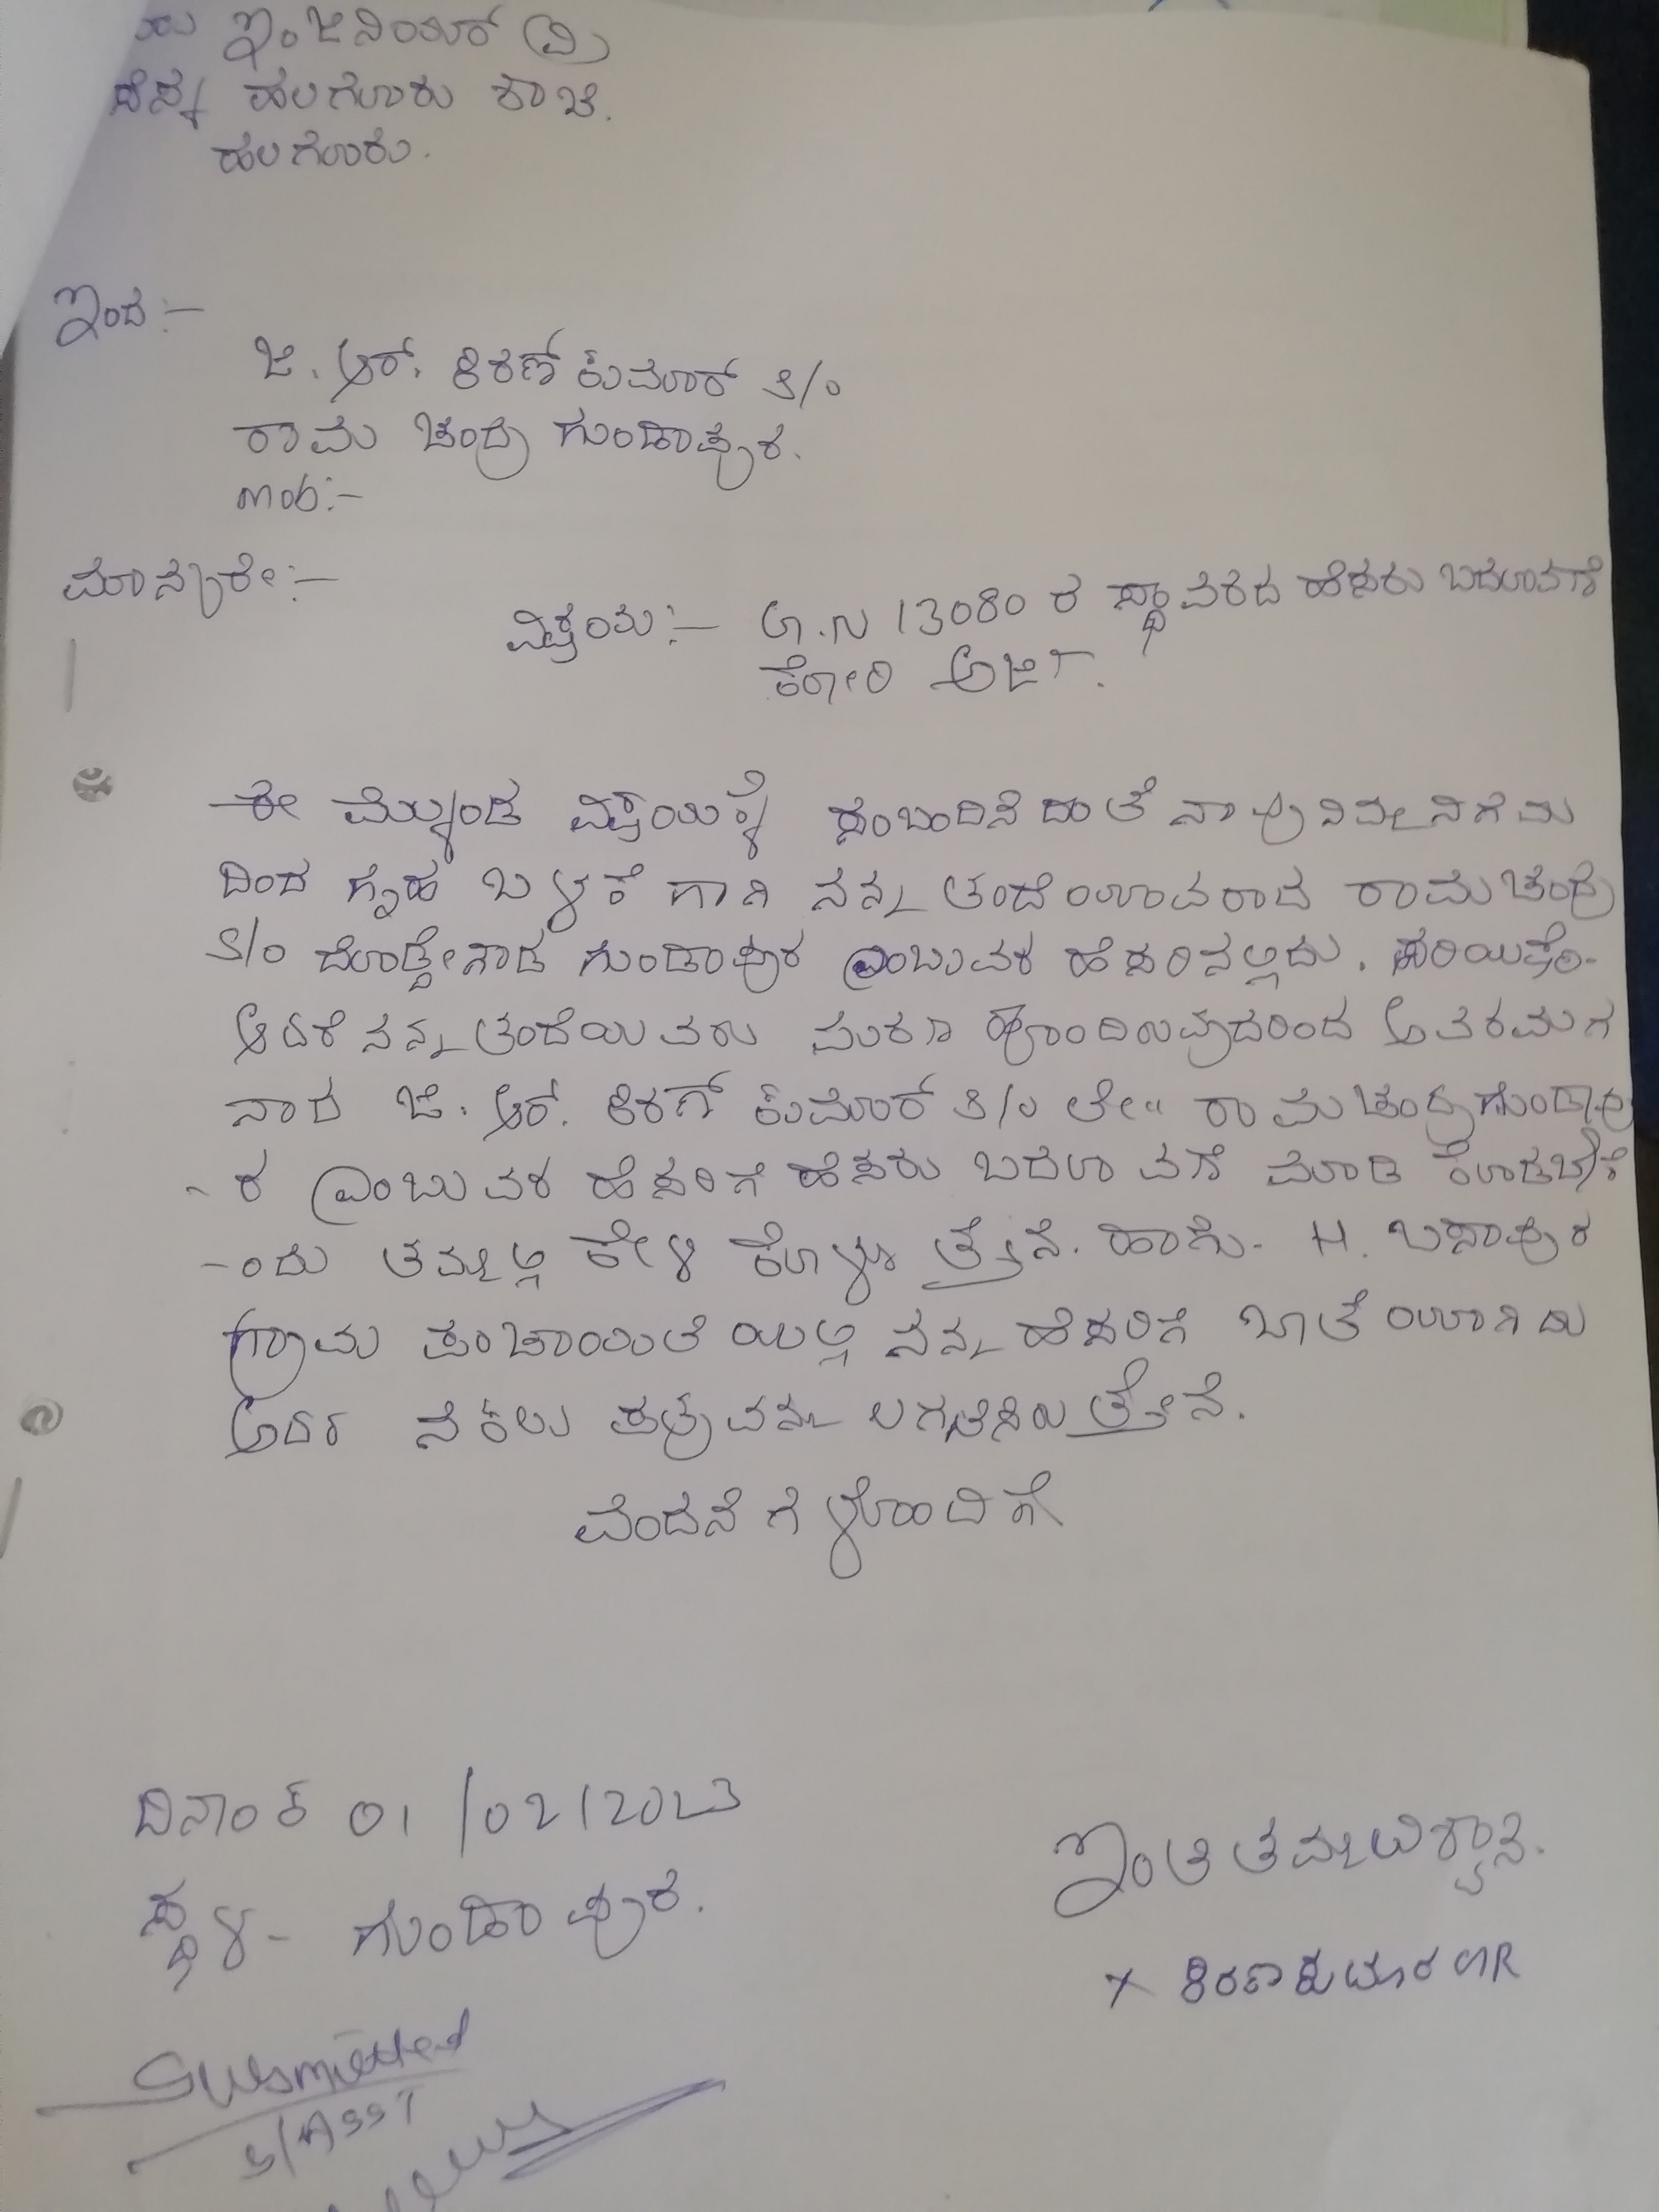 ಇಂಜಿನಿಯರ್ (ವಿ)
ಹಲಗೂರು ಶಾಖೆ.
ಹಲಗೂರು.
ಇಂದ:-
ಜಿ. ಆರ್. ಕಿರಣ್ ಕುಮಾರ್ S/o
ರಾಮ ಚಂದ್ರ ಗುಂಡಾಪುರ.
mob:-
ಮಾನ್ಯರೇ:-
ವಿಷಯ:- 13080 ರ ಸ್ಥಾವರದ ಹೆಸರು ಬದಲಾವಣೆ
ಕೋರಿ ಅರ್ಜಿ.
ಈ ಮೇಲ್ಕಂಡ ವಿಷಯಕ್ಕೆ ಸಂಬಂದಿಸಿದಂತೆ ನಾವು ನಿಗಮ
ದಿಂದ ಗೃಹ ಬಳಕೆ ಗಾಗಿ ನನ್ನ ತಂದೆಯಾವರಾದ ರಾಮಚಂದ್ರ
S/o ದೊಡ್ಡೇಗೌಡ ಗುಂಡಾಪುರ ಎಂಬುವರ ಹೆಸರಿನಲ್ಲಿದು.
ಆದರೆ ನನ್ನ ತಂದೆಯವರು ಮರಣ ಹೊಂದಿರುವುದರಿಂದ ಅವರಮಗ
ನಾದ ಜಿ. ಆರ್. ಕಿರಣ್ ಕುಮಾರ್ S/o ಲೇ" ರಾಮಚಂದ್ರ ಗುಂಡಾಪು
- ರ ಎಂಬುವರ ಹೆಸರಿಗೆ ಹೆಸರು ಬದಲಾವಣೆ ಮಾಡಿ ಕೊಡಬೇಕೆ
-ಂದು ತಮ್ಮಲ್ಲಿ ಕೇಳಿ ಕೊಳ್ಳುತ್ತೇನೆ. ಹಾಗು- H. ಬಸಾಪುರ
ಗ್ರಾಮ ಪಂಚಾಯಿತಿಯಲ್ಲಿ ನನ್ನ ಹೆಸರಿಗೆ ಖಾತೆಯಾಗಿದು
ಅದರ ನಕಲು ಪತ್ರವನ್ನು ಲಗತಿಸಿರುತ್ತೇನೆ.
ವಂದನೆಗಳೊಂದಿಗೆ
ದಿನಾಂಕ 01/02/2023
ಸ್ಥಳ- ಗುಂಡಾಪುರ.
ಇಂತಿ ತಮ್ಮ ವಿಶ್ವಾಸಿ.
x ಕಿರಣಕುಮಾರ GR
Submitted
S/Asst